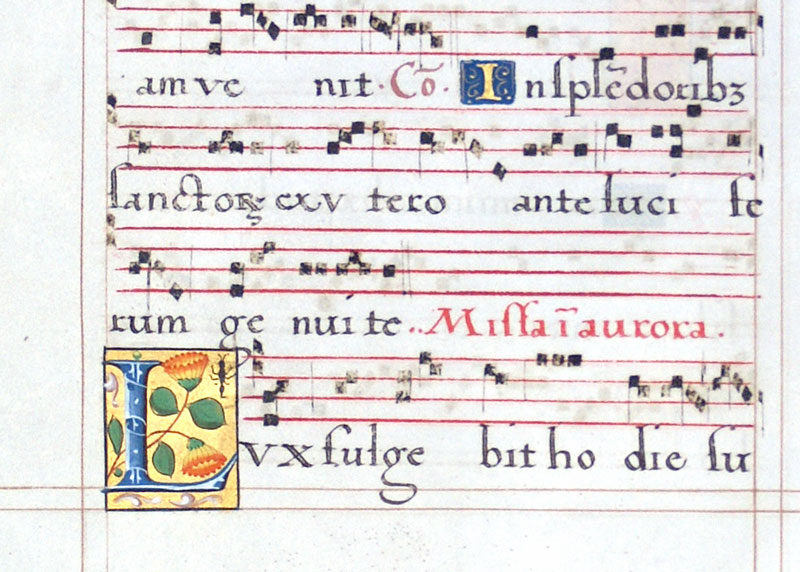 am ve nit. Cō. In splēdoribꝫ
sanctoꝝ ex v tero ante luci fe
rum ge nui te.. Missa ī aurora.
Lvx fulge bit ho die su